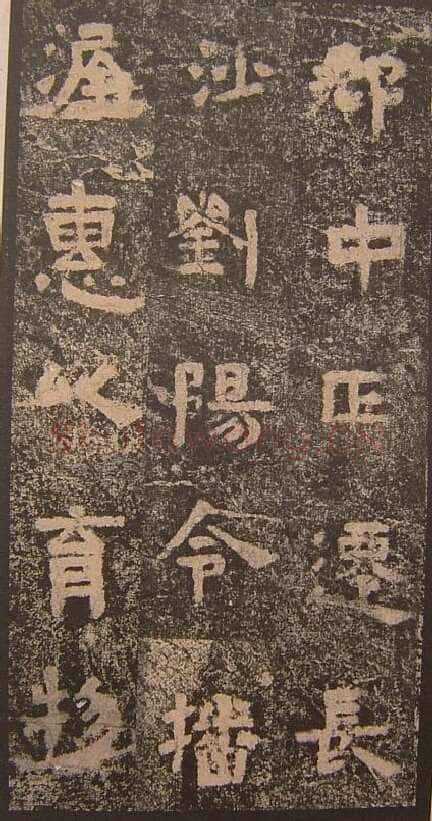 郡中正遷長
沙劉陽令播
渥惠以育